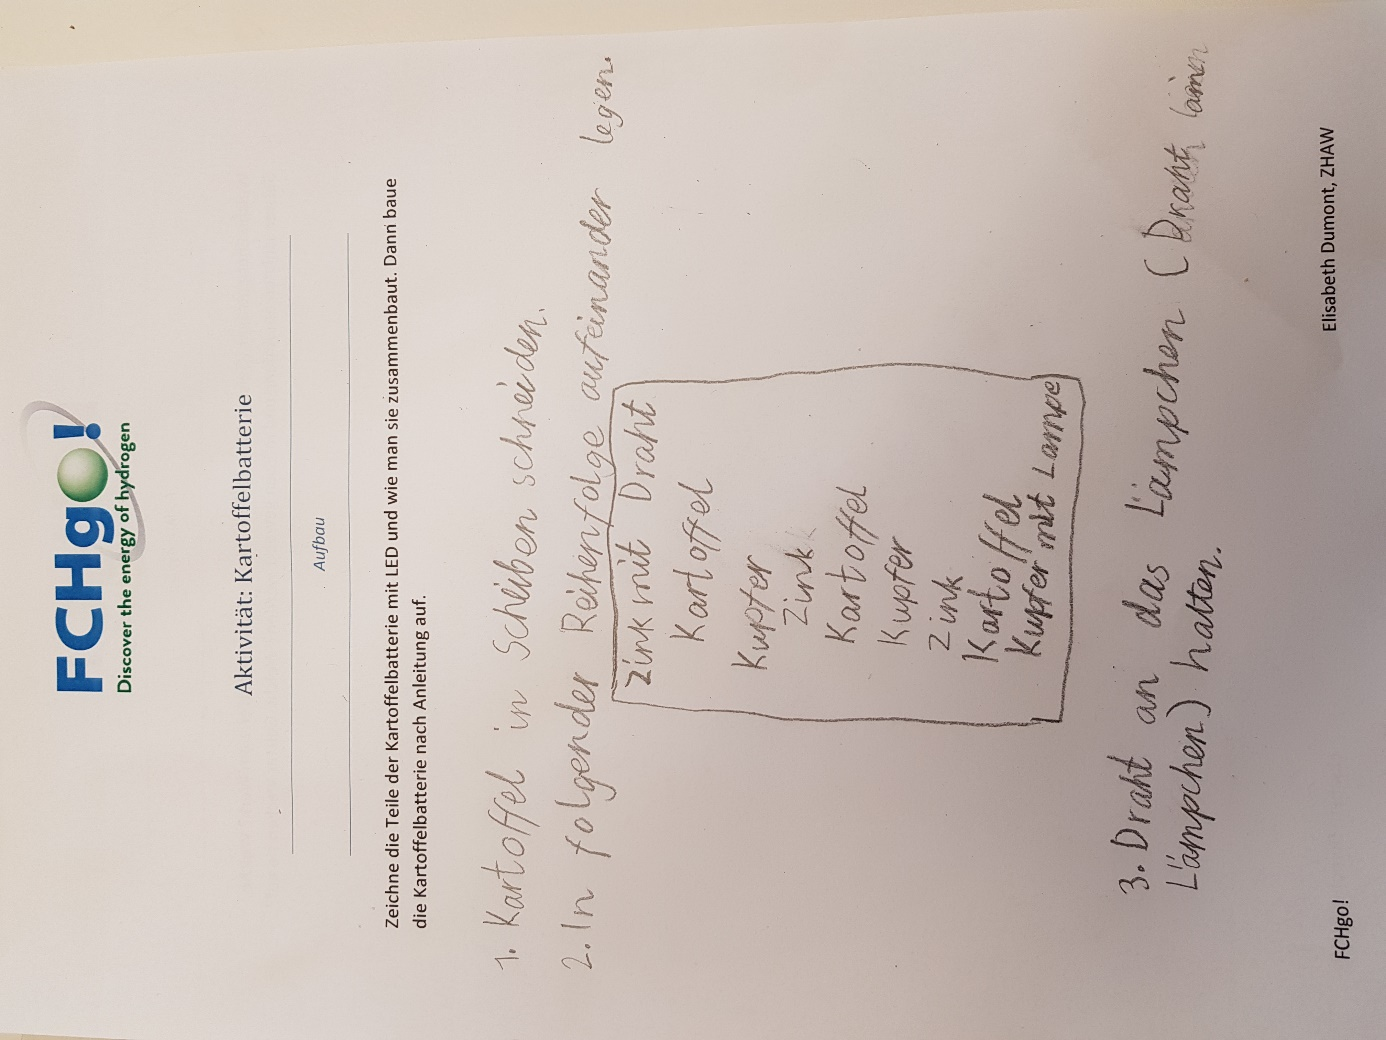 FCHgo!
Discover the energy of hydrogen
Aktivität: Kartoffelbatterie
Aufbau
Zeichne die Teile der Kartoffelbatterie mit LED und wie man sie zusammenbaut. Dann baue
die Kartoffelbatterie nach Anleitung auf.
1. Kartoffel in Scheiben schneiden.
2. In folgender Reihenfolge aufeinander legen.
Zink mit Draht
Kartoffel
Kupfer
Zink
Kartoffel
Kupfer
Zink
Kartoffel
Kupfer mit Lampe
3. Draht an das Lämpchen (Draht
Lämpchen) halten.
FCHgo!
Elisabeth Dumont, ZHAW